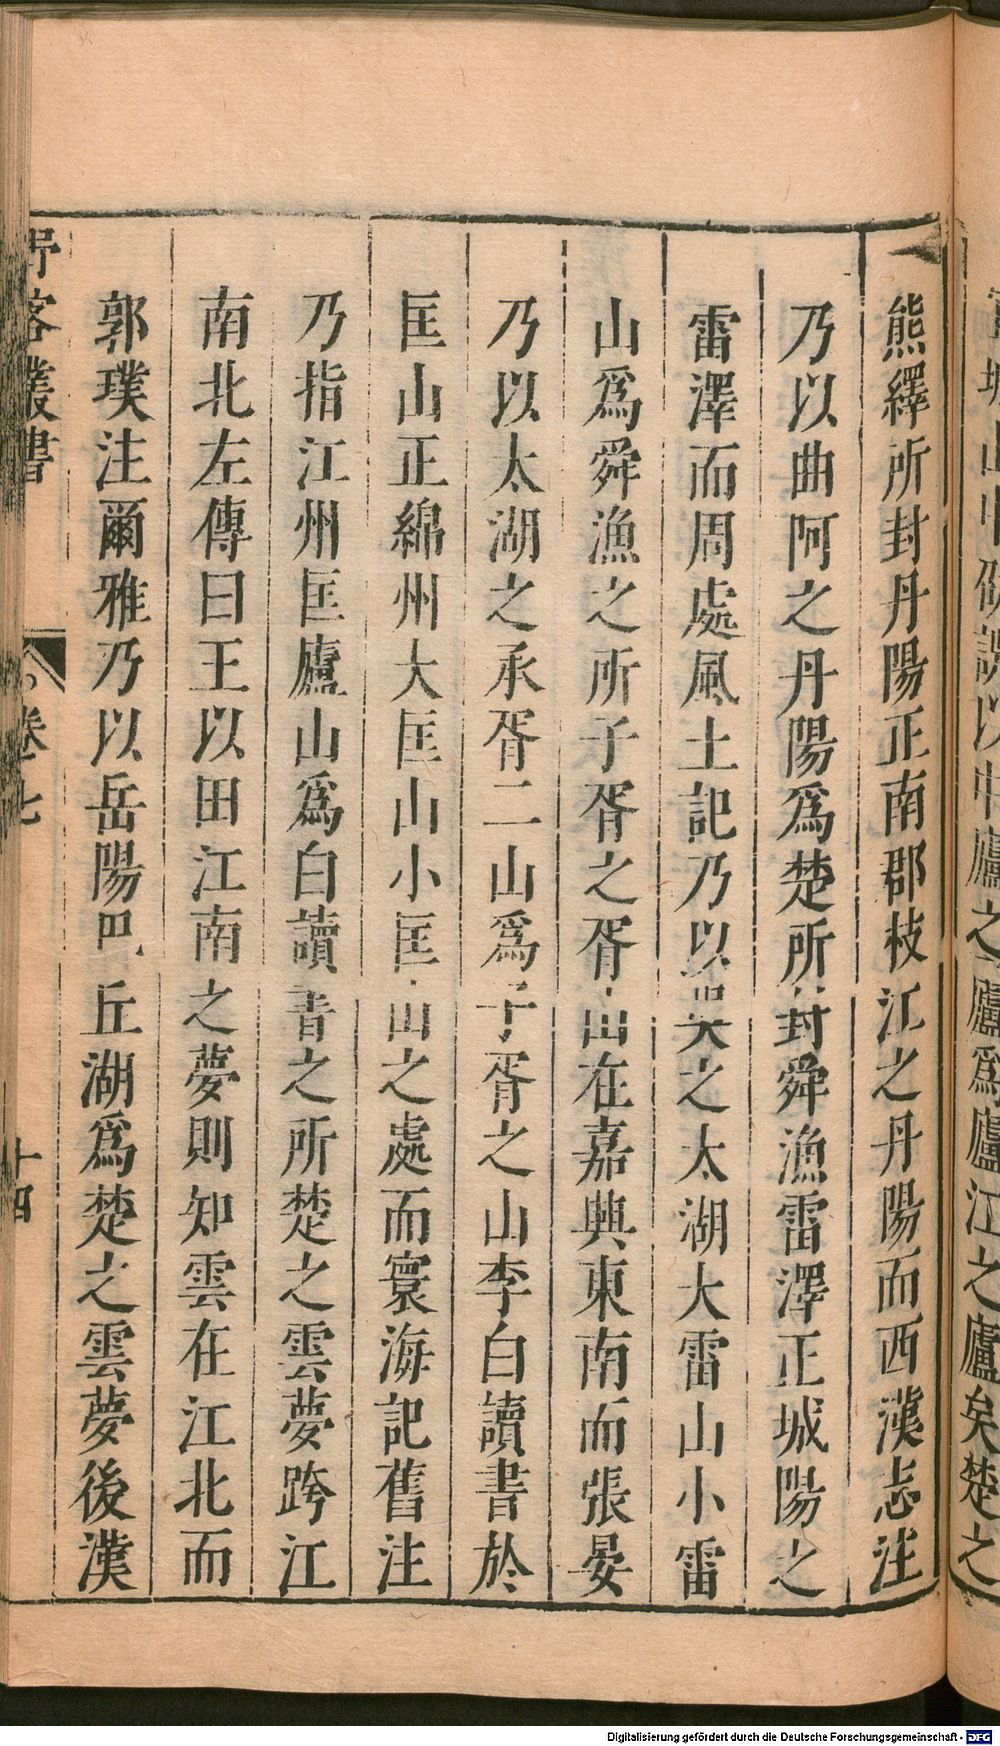 熊繹所封丹陽正南郡枝江之丹陽而西漢志注
乃以曲阿之丹陽爲楚所封舜漁雷澤正城陽之
雷澤而周處風土記乃以吳之太湖大雷山小雷
山爲舜漁之所子胥之胥山在嘉興東南而張晏
乃以太湖之承胥二山爲子胥之山李白讀書於
匡山正綿州大匡山小匡山之處而寰海記舊注
乃指江州匡廬山爲白讀書之所楚之雲夢跨江
南北左傳曰王以田江南之夢則知雲在江北而
郭璞注爾雅乃以岳陽巴丘湖爲楚之雲夢後漢
野客叢書 卷七 十四
Digitalisierung gefördert durch die Deutsche Forschungsgemeinschaft - DFG